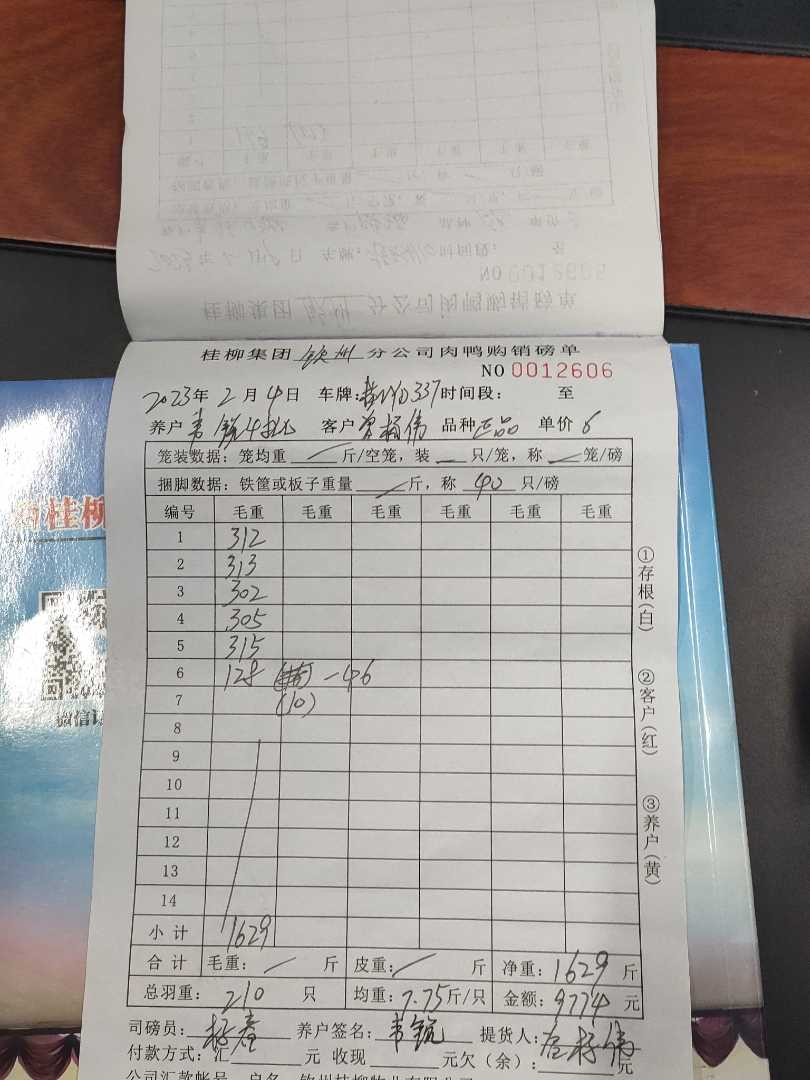 桂柳集团 钦州 分公司肉鸭购销磅单
NO 0012606
2023年 2 月 4 日 车牌: 337 时间段: 至
养户 韦 客户 品种 正品 单价 6
笼装数据: 笼均重 斤/空笼, 装 只/笼, 称 笼/磅
捆脚数据: 铁筐或板子重量 斤, 称 40 只/磅
编号 毛重 毛重 毛重 毛重 毛重 毛重
1 312
2 313
3 302
4 305
5 315
6 128 -46
7 (10)
8
9
10
11
12
13
14
小计 1629
合计 毛重: 斤 皮重: 斤 净重: 1629 斤
总羽重: 210 只 均重: 7.75 斤/只 金额: 9774 元
司磅员: 养户签名: 韦 提货人:
付款方式: 汇 元 收现 元欠(余): 元
①存根(白)
②客户(红)
③养户(黄)
桂柳
微信